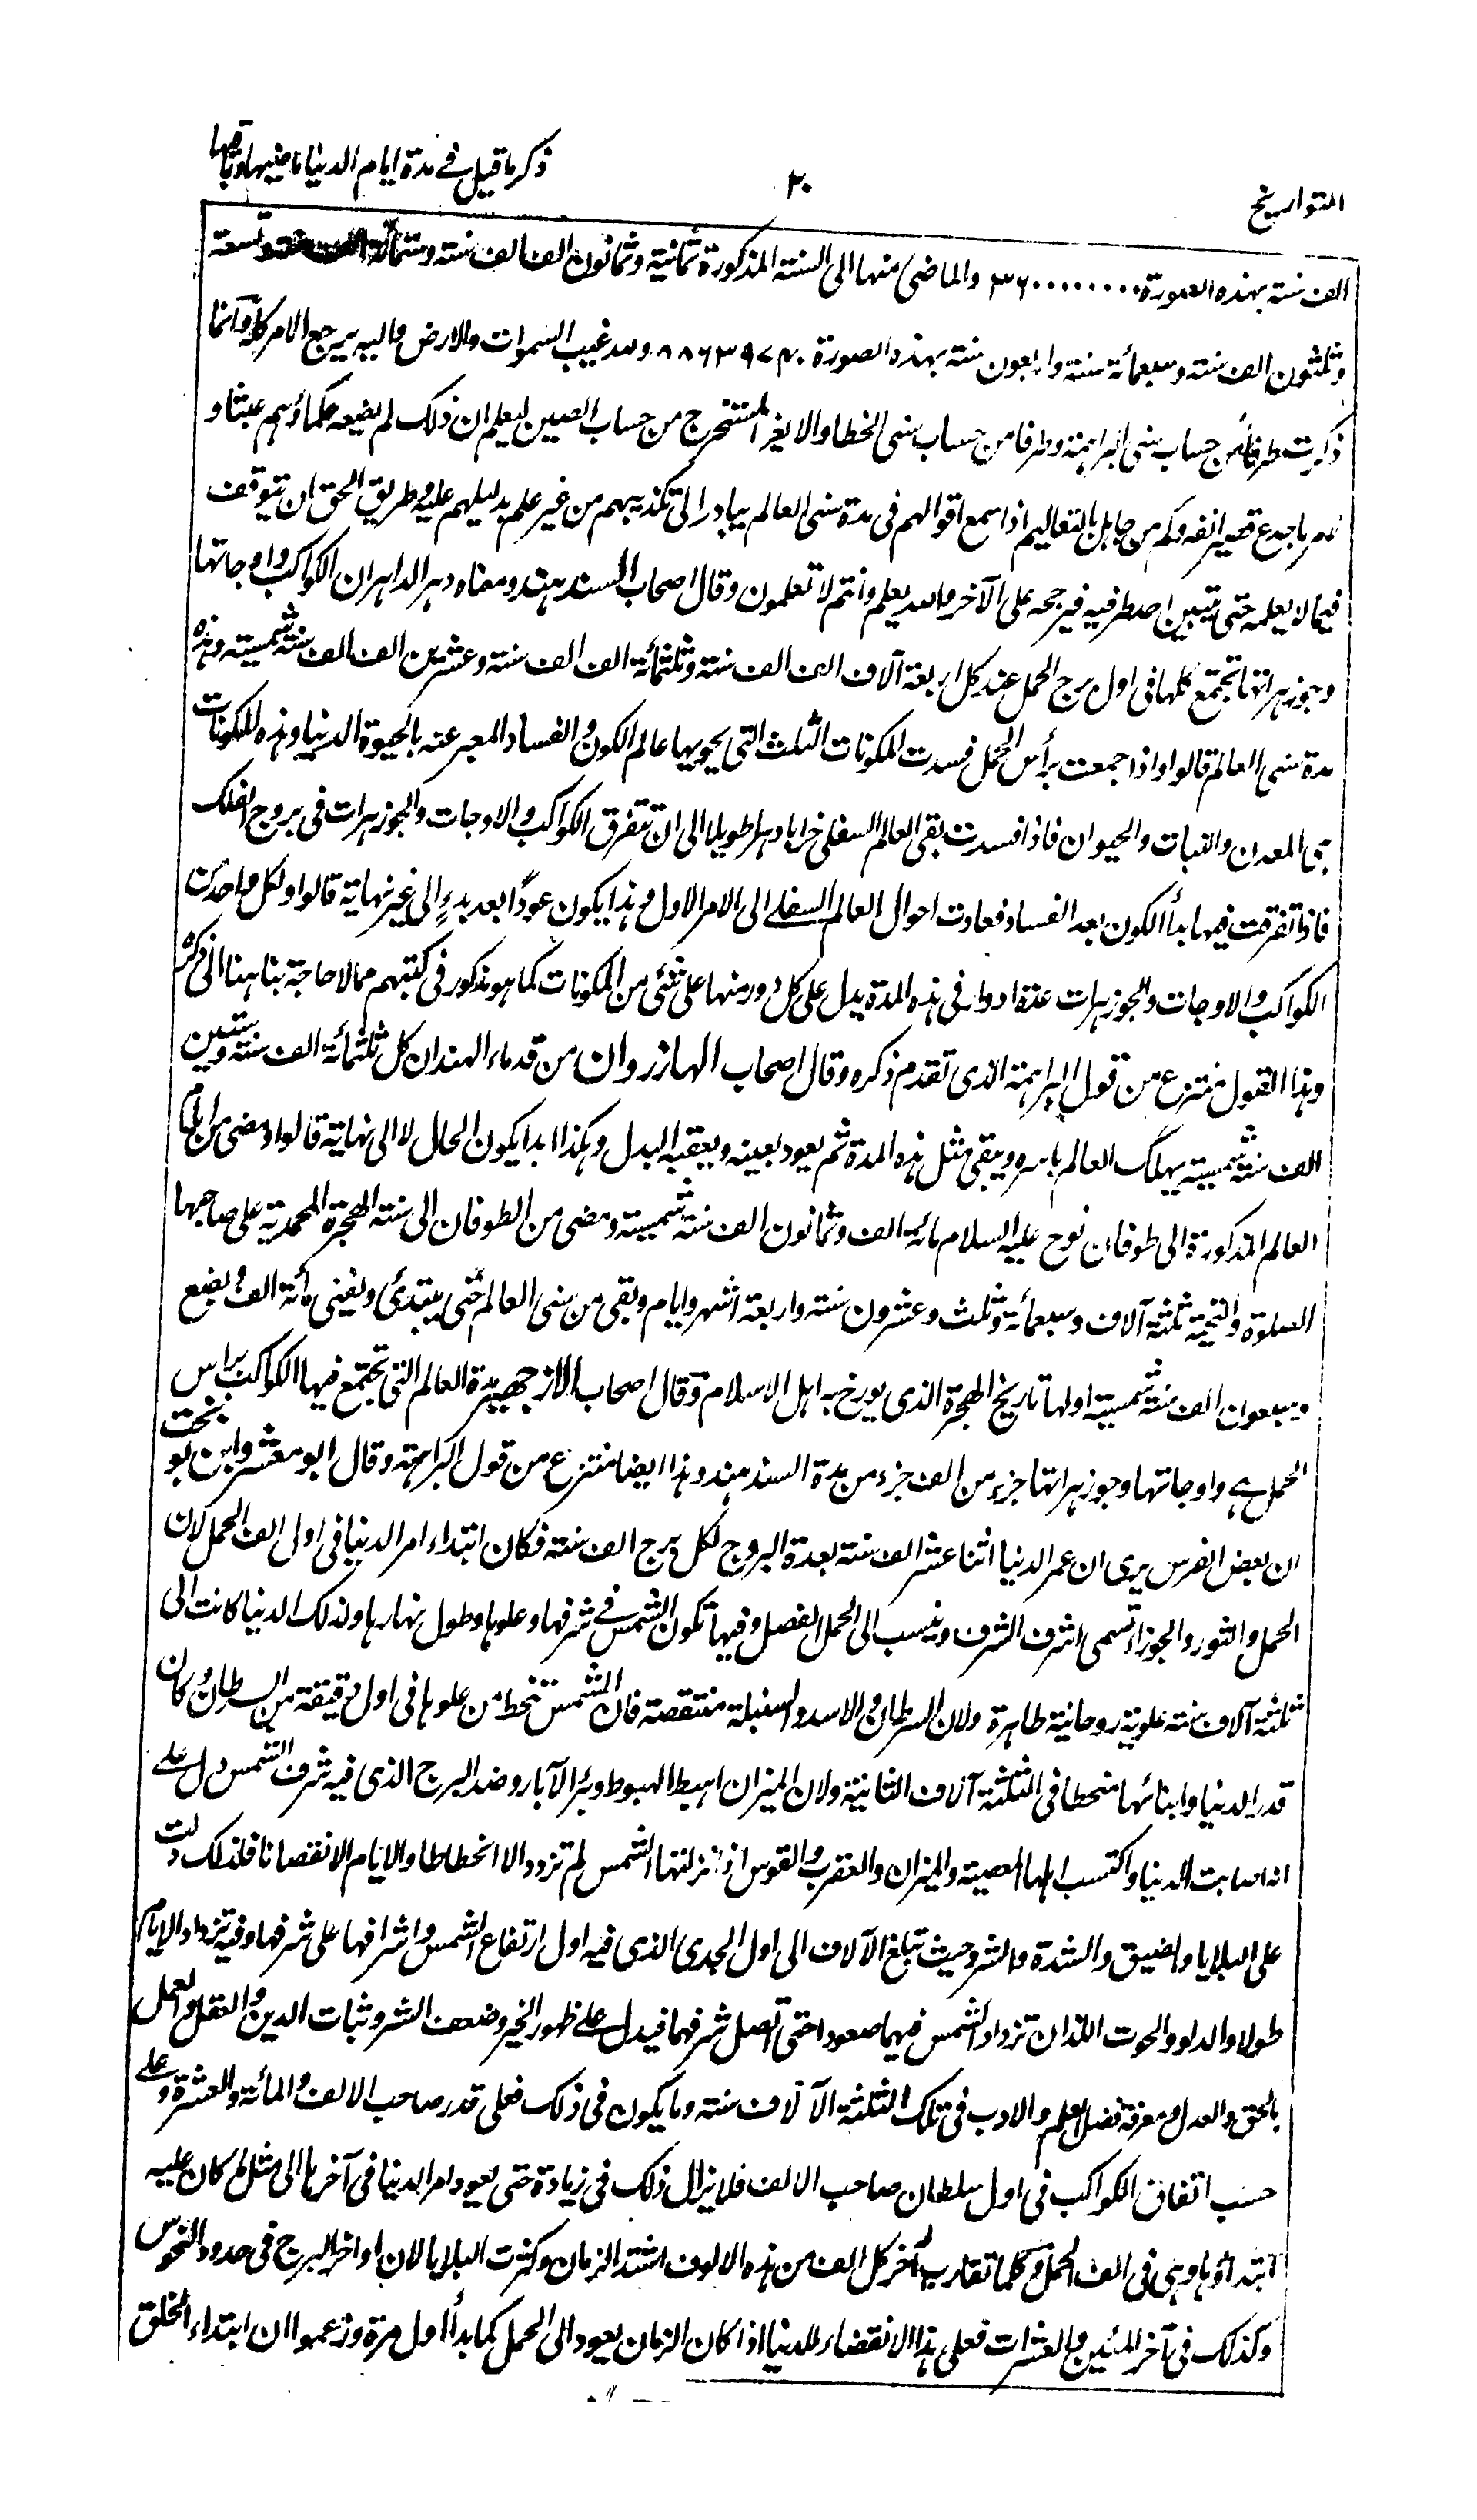 التواريخ
٢٠
ذكر ما قيل في مدة ايام الدنيا ماضيها وباقيها
الف سنته بهذه الصورة ٣٦٠٠٠٠٠٠٠٠ والماضى منها الى السنته المذكورة ثمانية وثمانون الف الف سنته وستمائة الف وتسعة
وثلثون الف سنته وسبعمائة سنته واربعون سنته بهذه الصورة ٨٨٦٣٩٧٤٠ ولله غيب السموات والارض واليه يرجع الامر كله وانما
ذكرت طرفا من حساب سنى البراهمة وطرفا من حساب سنى الخطا والايغر المستخرج من حساب الصين ليعلم ان ذلك لم يضعه حكماؤهم عبثا و
لامر ما جدع قصير انفه وكم من جاهل بالتعاليم اذا سمع اقوالهم فى مدة سنى العالم يبادر الى تكذيبهم من غير علم بدليلهم عليه وطريق الحق ان يتوقف
فيما لا يعلمه حتى يتبين احد طرفيه فيرجحه على الآخر والله يعلم وانتم لا تعلمون وقال اصحاب السند هند ومعناه دهر الداهر ان الكواكب واوجاتها
وجوزهراتها تجتمع كلها فى اول برج الحمل عند كل اربعة آلاف الف الف سنته وثلثمائة الف الف سنته وعشرين الف الف سنته شمسية وهذه
مدة سنى العالم قالوا واذا جمعت برأس الحمل فسدت المكونات الثلث التى يحويها عالم الكون والفساد المعبر عنه بالحيوة الدنيا وهذه المكونات
هى المعدن والنبات والحيوان فاذا فسدت بقى العالم السفلى خرابا دهرا طويلا الى ان تتفرق الكواكب والاوجات والجوزهرات فى بروج الفلك
فاذا تفرقت فيها بدأ الكون بعد الفساد فعادت احوال العالم السفلے الى الامر الاول وهذا يكون عودًا بعد بدءٍ الى غير نهاية قالوا ولكل واحد من
الكواكب والاوجات والجوزهرات عدة ادوار فى هذه المدة يدل على كل دور منها على شئ من المكونات كما هو مذكور فى كتبهم مما لا حاجة بنا هنا الى ذكره
وهذا القول منتزع من قول البراهمة الذى تقدم ذكره وقال اصحاب الهازروان من قدماء الهند ان كل ثلثمائة الف سنته وستين
الف سنته شمسية يهلك العالم باسره ويبقى مثل هذه المدة ثم يعود بعينه ويعقبه البدل وهكذا ابدا يكون الحال لا الى نهاية قالوا ومضى من ايام
العالم المذكورة الى طوفان نوح عليه السلام مائة الف وثمانون الف سنته شمسية ومضى من الطوفان الى سنته الهجرة المحمدية على صاحبها
الصلوة والتحية ثلثة آلاف وسبعمائة وثلث وعشرون سنته واربعة اشهر وايام وبقى من سنى العالم حتى يبتدئ ويفنى مائة الف وبضع
وسبعون الف سنته شمسية اولها تاريخ الهجرة الذى يورخ به اهل الاسلام وقال اصحاب الازجهير مدة العالم التى تجتمع فيها الكواكب براس
الحمل هے واوجاتها وجوزهراتها جزء من الف جزء من مدة السند هند وهذا ايضا منتزع من قول البراهمة وقال ابو معشر وابن نو بخت
ان بعض الفرس يرى ان عمر الدنيا اثنا عشر الف سنته بعدة البروج لكل برج الف سنته فكان ابتداء امر الدنيا فى اول الف الحمل لان
الحمل والثور والجوزاء تسمى اشرف الشرف وينسب الى الحمل الفصل وفيها تكون الشمس فے شرفها وعلوها وطول نهارها ولذلك الدنيا كانت الى
ثلثة آلاف سنته علوية روحانية طاهرة ولان السرطان والاسد والسنبلة منتقصة فان الشمس تنحط من علوها فى اول دقيقة من السرطان وكان
قدر الدنيا وابنائها منحطا فى الثلثة آلاف الثانية ولان الميزان اهبط الهبوط وبئر الآبار وضد البرج الذى فيه شرف الشمس دل علے
انه اصابت الدنيا واكتسب اهلها المعصية والميزان والعقرب والقوس اذا نزلتها الشمس لم تزدد الا انحطاطا والايام الا نقصانا فلذلك دلت
على البلايا والضيق والشدة والشر وحيث تبلغ الآلاف الى اول الجدى الذى فيه اول ارتفاع الشمس واشرافها على شرفها وفيه تزداد الايام
طولا والدلو والحوت اللذان تزداد الشمس فيهما صعودا حتى تصل شرفها فيدل علے ظهور الخير وضعف الشر وثبات الدين والعقل والعمل
بالحق والعدل ومعرفة فضل العلم والادب فى تلك الثلثة الآلاف سنته وما يكون فى ذلك فعلى قدر صاحب الالف والمائة والعشرة وعلے
حسب اتفاق الكواكب فى اول سلطان صاحب الالف فلا يزال ذلك فى زيادة حتى يعود امر الدنيا فى آخرها الى مثل ما كان عليه
ابتداؤها وهى فى الف الحمل وكلما تقارب آخر كل الف من هذه الالوف اشتد الزمان وكثرت البلايا لان اواخر البرج فى حدود النحوس
وكذلك فى آخر المئين والعشرات فعلى هذا الانقضاء للدنيا اذا كان الزمان يعود الى الحمل كما بدأ اول مرة وزعموا ان ابتداء الخلق